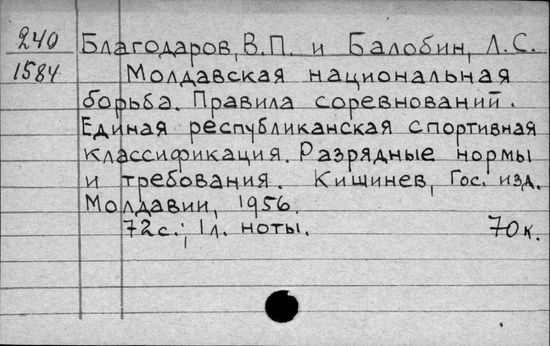 240 Благодаров, В.П. и Балобин, Л.С.
1584 Молдавская национальная
борьба. Правила соревнований.
Единая республиканская спортивная
классификация. Разрядные нормы
и требования. Кишинев, Гос. изд.
Молдавии, 1956.
72с.; 1л. ноты. 70к.